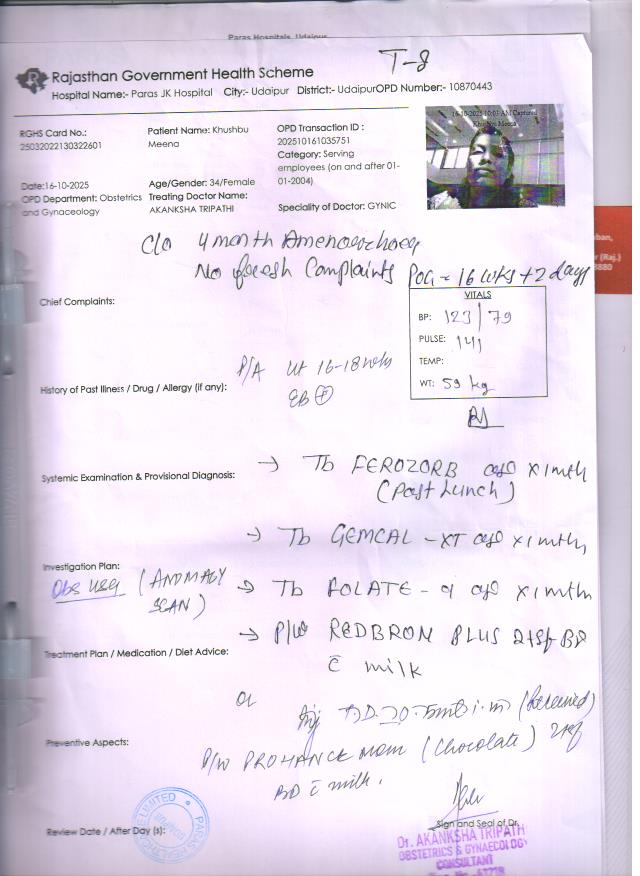 Paras Hospitals, Udaipur
T-8
Rajasthan Government Health Scheme
Hospital Name:- Paras JK Hospital City:- Udaipur District:- UdaipurOPD Number:- 10870443
16-10-2025 10:03 AM Captured
Khushbu Meena
RGHS Card No.:
25032022130322601
Patient Name: Khushbu
Meena
OPD Transaction ID :
202510161035751
Category: Serving
employees (on and after 01-
01-2004)
Date:16-10-2025
OPD Department: Obstetrics
and Gynaceology
Age/Gender: 34/Female
Treating Doctor Name:
AKANKSHA TRIPATHI
Speciality of Doctor: GYNIC
C/o 4 month Amenorrhoea
No fresh Complaints POG = 16 wks + 2 days
Chief Complaints:
VITALS
BP: 123/79
PULSE: 141
TEMP:
WT: 59 kg
P/A ut 16-18 wks
EB +
History of Past Illness / Drug / Allergy (if any):
Systemic Examination & Provisional Diagnosis:
→ Tb FEROZORB x 1 mth
(Past Lunch)
→ Tb GEMCAL - XT x 1 mth
Investigation Plan:
Obs USG (ANOMALY
SCAN)
→ Tb FOLATE - 9 x 1 mth
→ P/W REDBRON PLUS 2tsf BD
c̄ milk
Treatment Plan / Medication / Diet Advice:
or
Inj (Received)
Preventive Aspects:
P/W PROHANCE MOM (Chocolate) 2tsf
BD c̄ milk.
Review Date / After Day (s):
Sign and Seal of Dr.
Dr. AKANKSHA TRIPATHI
OBSTETRICS & GYNAECOLOGY
CONSULTANT